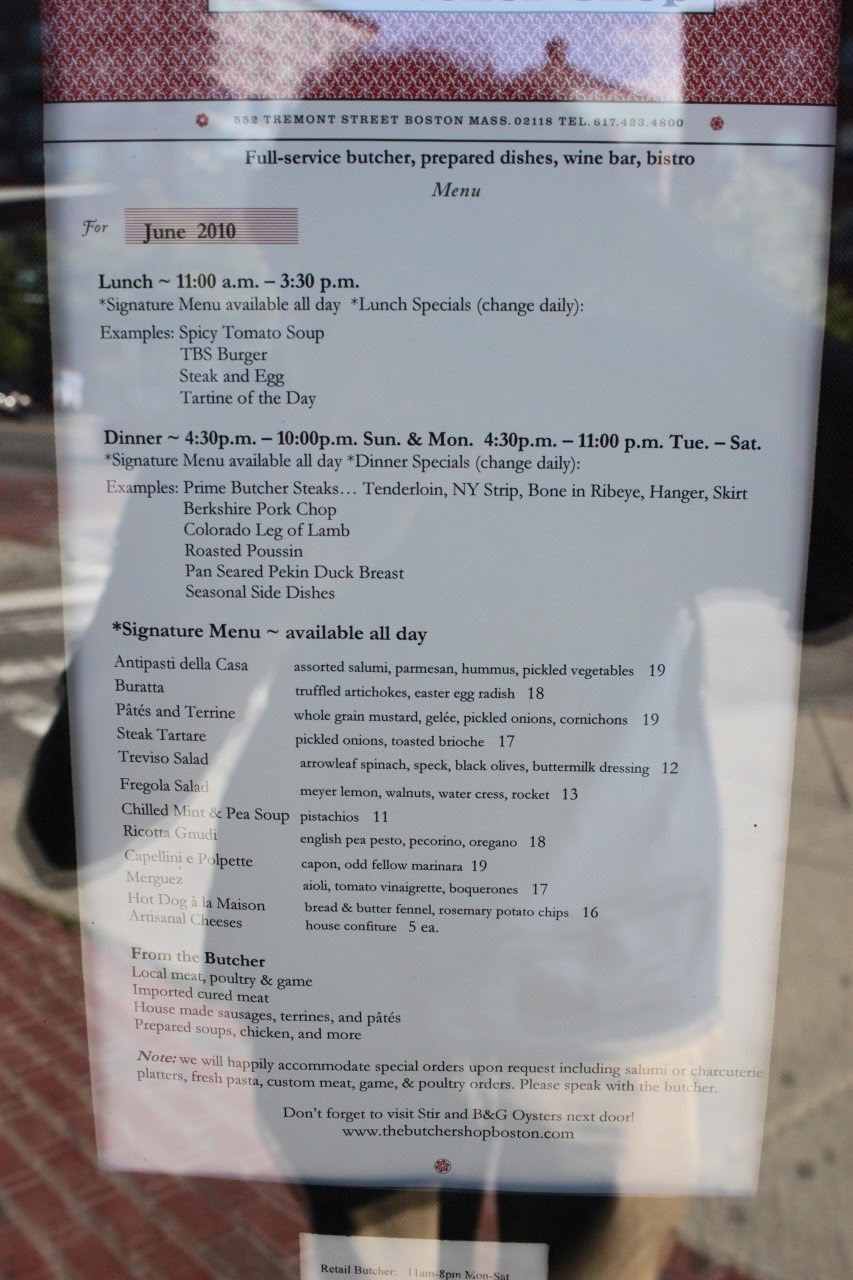 552 TREMONT STREET BOSTON MASS. 02118 TEL. 617.423.4800
Full-service butcher, prepared dishes, wine bar, bistro
Menu
For June 2010
Lunch ~ 11:00 a.m. – 3:30 p.m.
*Signature Menu available all day *Lunch Specials (change daily):
Examples: Spicy Tomato Soup
TBS Burger
Steak and Egg
Tartine of the Day
Dinner ~ 4:30p.m. – 10:00p.m. Sun. & Mon. 4:30p.m. – 11:00 p.m. Tue. – Sat.
*Signature Menu available all day *Dinner Specials (change daily):
Examples: Prime Butcher Steaks… Tenderloin, NY Strip, Bone in Ribeye, Hanger, Skirt
Berkshire Pork Chop
Colorado Leg of Lamb
Roasted Poussin
Pan Seared Pekin Duck Breast
Seasonal Side Dishes
*Signature Menu ~ available all day
Antipasti della Casa assorted salumi, parmesan, hummus, pickled vegetables 19
Buratta truffled artichokes, easter egg radish 18
Pâtés and Terrine whole grain mustard, gelée, pickled onions, cornichons 19
Steak Tartare pickled onions, toasted brioche 17
Treviso Salad arrowleaf spinach, speck, black olives, buttermilk dressing 12
Fregola Salad meyer lemon, walnuts, water cress, rocket 13
Chilled Mint & Pea Soup pistachios 11
Ricotta Gnudi english pea pesto, pecorino, oregano 18
Capellini e Polpette capon, odd fellow marinara 19
Merguez aioli, tomato vinaigrette, boquerones 17
Hot Dog à la Maison bread & butter fennel, rosemary potato chips 16
Artisanal Cheeses house confiture 5 ea.
From the Butcher
Local meat, poultry & game
Imported cured meat
House made sausages, terrines, and pâtés
Prepared soups, chicken, and more
Note: we will happily accommodate special orders upon request including salumi or charcuterie
platters, fresh pasta, custom meat, game, & poultry orders. Please speak with the butcher.
Don't forget to visit Stir and B&G Oysters next door!
www.thebutchershopboston.com
Retail Butcher: 11am-8pm Mon-Sat